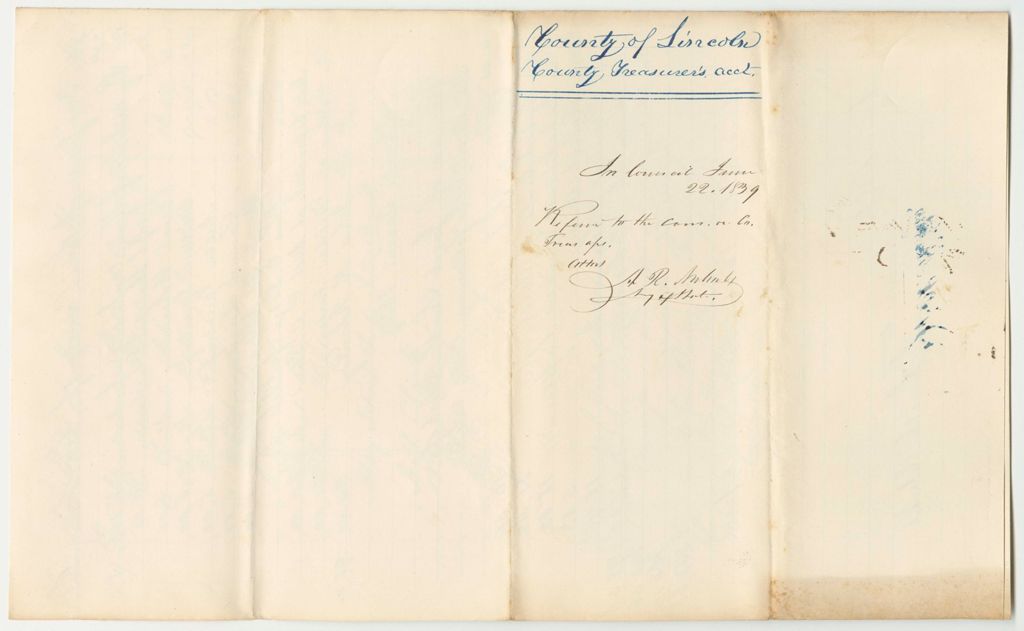 County of Lincoln
County Treasurer's acct.
In Council June
22. 1839
Referred to the com. on Co.
Treas aps.
Attest
A R. Nichols
Sy of State.